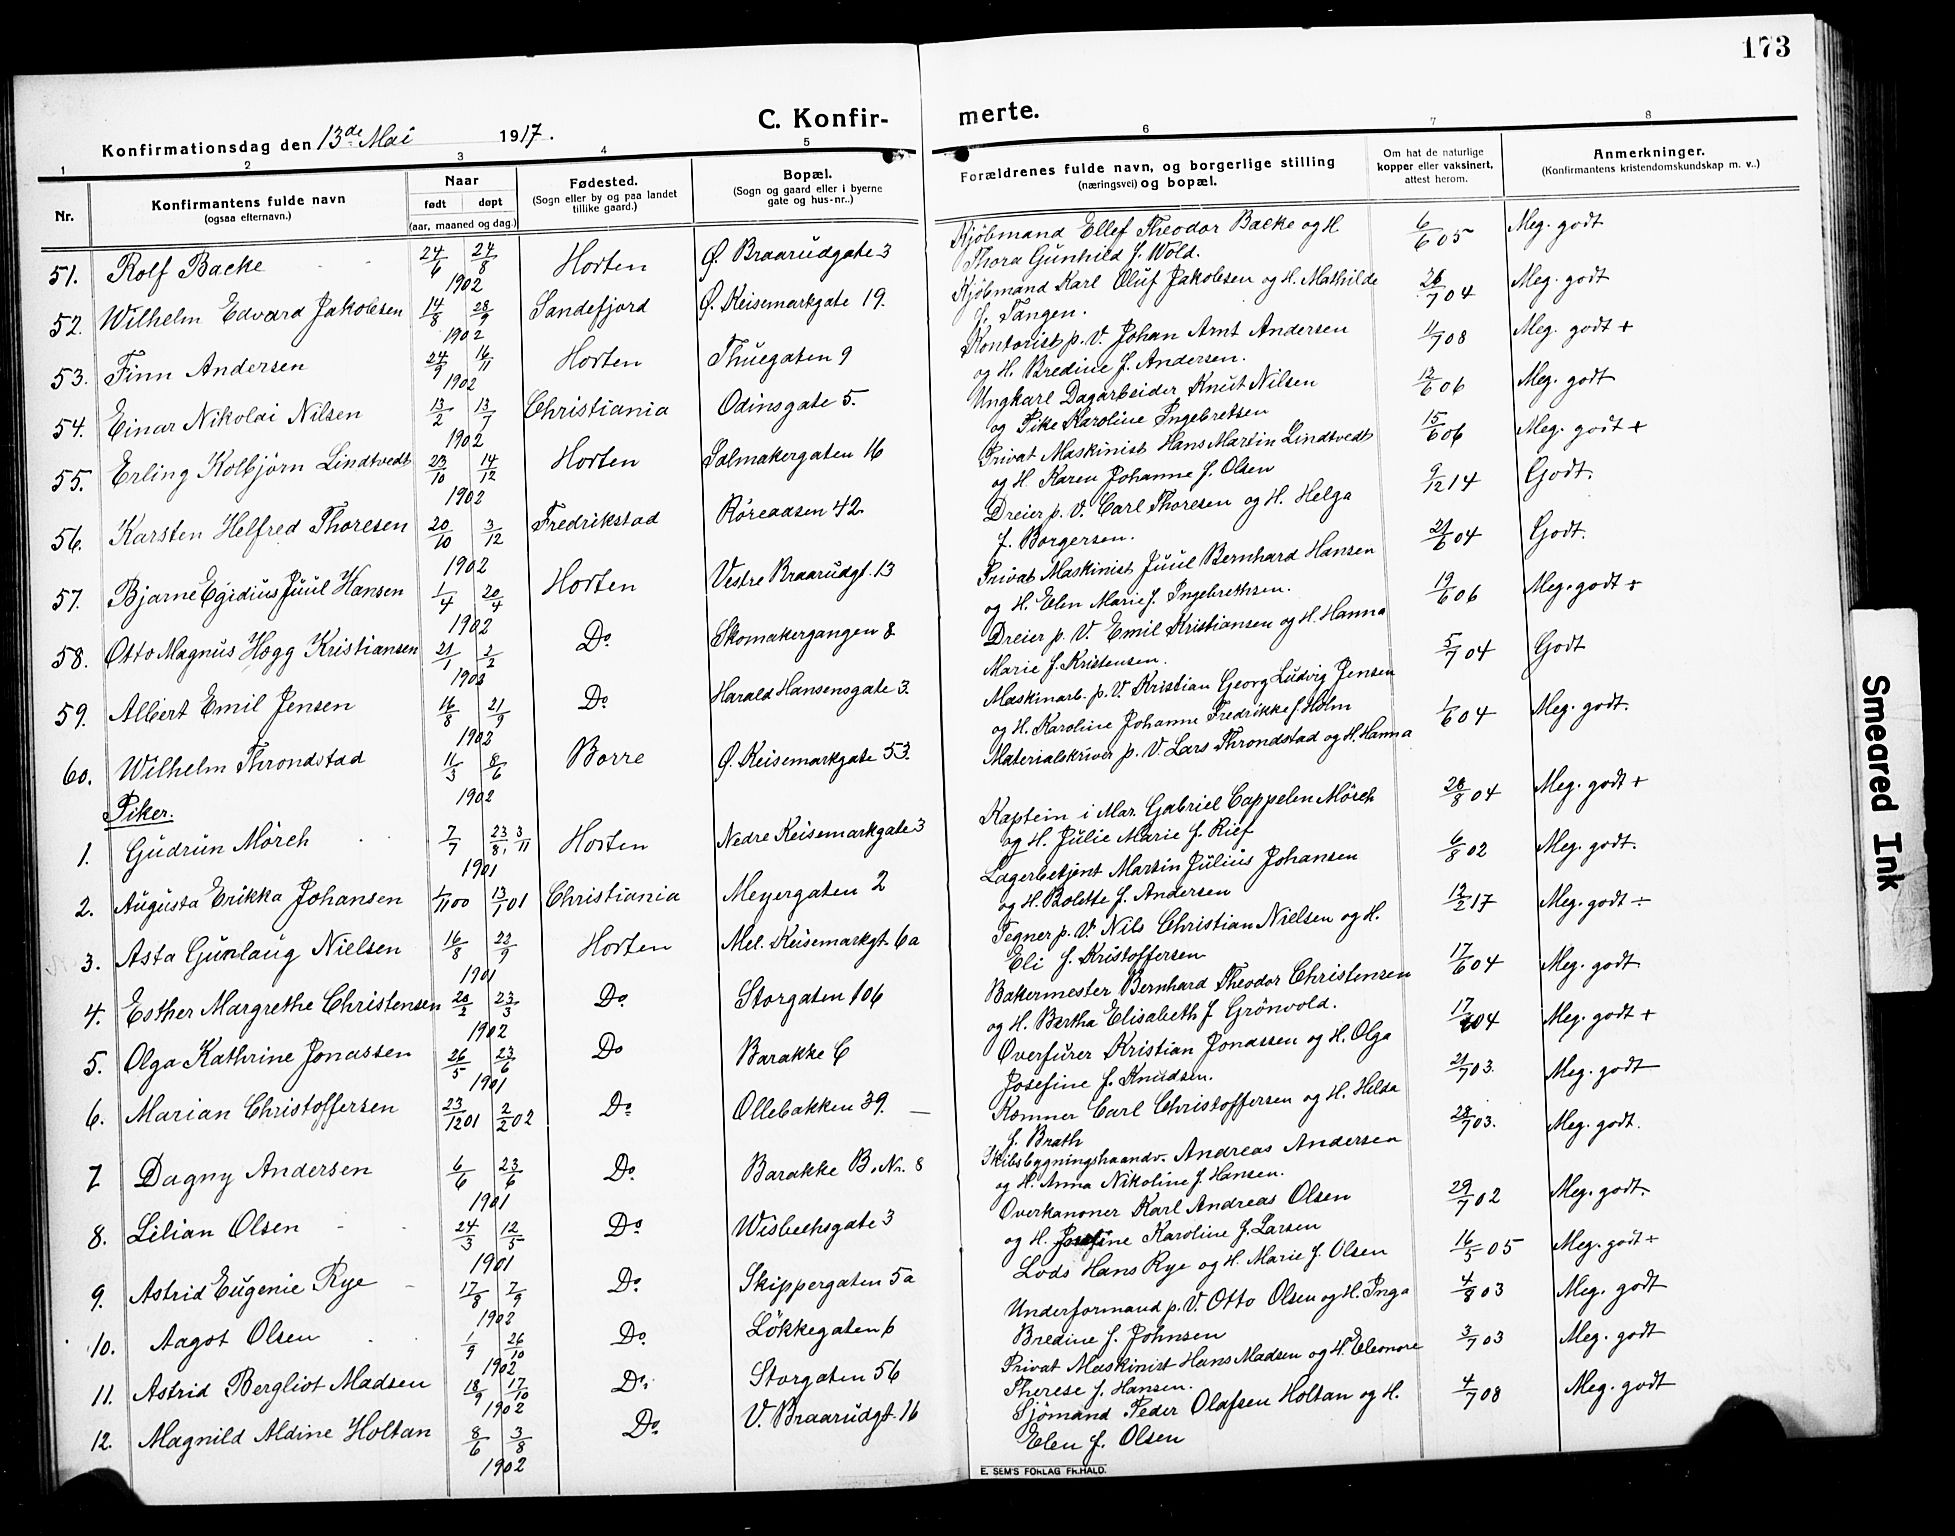 173
C. Konfir-
merte.
Konfirmationsdag den 13de Mai 1917.
1 2 3 4 5 6 7 8
Nr.
Konfirmantens fulde navn
(ogsaa efternavn.)
Naar
født døpt
(aar, maaned og dag.)
Fødested.
(Sogn eller by og paa landet
tillike gaard.)
Bopæl.
(Sogn og gaard eller i byerne
gate og hus-nr..)
Forældrenes fulde navn, og borgerlige stilling
(næringsvei) og bopæl.
Om hat de naturlige
kopper eller vaksinert,
attest herom.
Anmerkninger.
(Konfirmantens kristendomskundskap m. v..)
51. Rolf Backe 24/6 24/8 1902 Horten Ø. Braarudgate 3 Kjøbmand Ellef Theodor Backe og H. 6/6 05 Meg. godt
Thora Gunhild f. Wold.
52. Wilhelm Edvard Jakobsen 14/8 28/9 1902 Sandefjord Ø. Keisemarkgate 19. Kjøbmand Karl Oluf Jakobsen og H. Mathilde 26/7 04 Meg. godt
f. Tangen.
53. Finn Andersen 24/9 16/11 1902 Horten Thuegaten 9 Kontorist p. V. Johan Arnt Andersen 11/7 08 Meg. godt +
og H. Bredine f. Andersen.
54. Einar Nikolai Nilsen 13/2 13/7 1902 Christiania Odinsgate 5. Ungkarl Dagarbeider Knut Nilsen 12/6 06 Meg. godt
og Pike Karoline Ingebretsen
55. Erling Kolbjörn Lindtvedt 23/10 14/12 1902 Horten Salmakergaten 16 Privat Maskinist Hans Martin Lindtvedt 15/6 06 Meg. godt +
og H. Karen Johanne f. Olsen
56. Karsten Helfred Thoresen 20/10 3/12 1902 Fredrikstad Röreaasen 42 Dreier p. V. Carl Thoresen og H. Helga 9/12 14 Godt.
f. Borgersen.
57. Bjarne Egidius Juul Hansen 1/4 20/4 1902 Horten Vestre Braarudgt. 13 Privat Maskinist Juul Bernhard Hansen 21/6 04 Godt.
og H. Elen Marie f. Ingebrethsen.
58. Otto Magnus Hogg Kristiansen 21/1 2/2 1902 Do Skomakergangen 8 Dreier p. V. Emil Kristiansen og H. Hanna 19/6 06 Meg. godt +
Marie f. Kristensen.
59. Albert Emil Jensen 16/8 21/9 1902 Do Harald Hansensgate 3. Maskinarb. p. V. Kristian Georg Ludvig Jensen 5/7 04 Godt
og H. Karoline Johanne Fredrikke f. Holm
60. Wilhelm Throndstad 11/3 8/6 1902 Borre Ø. Keisemarkgate 53. Materialskriver p. V. Lars Throndstad og H. Hanna 1/6 04 Meg. godt.
Piker.
1. Gudrun Mörch 7/7 23/8, 3/11 1901 Horten Nedre Keisemarkgate 3 Kaptein i Mar. Gabriel Cappelen Mörch 28/8 04 Meg. godt +
og H. Julie Marie f. Rief
2. Augusta Erikka Johansen 1/11 00 13/1 01 Christiania Meyergaten 2 Lagerbetjent Martin Julius Johansen 6/8 02 Meg. godt.
og H. Bolette f. Andersen
3. Asta Gunlaug Nielsen 16/8 22/9 1901 Horten Mel. Keisemarkgt. 6a Tegner p. V. Nils Christian Nielsen og H. 12/2 17 Meg. godt ÷
Eli f. Kristoffersen
4. Esther Margrethe Christensen 20/2 23/3 1902 Do Storgaten 106 Bakermester Bernhard Theodor Christensen 17/6 04 Meg. godt
og H. Bertha Elisabeth f. Grönvold.
5. Olga Kathrine Jonassen 26/5 23/6 1901 Do Barakke C Overfurer Kristian Jonassen og H. Olga 17/ 04 Meg. godt +
Josefine f. Knudsen.
6. Marian Christoffersen 23/12 01 2/2 02 Do Ollebakken 39. Kommer Carl Christoffersen og H. Hilda 21/7 03. Meg. godt
f. Brath
7 Dagny Andersen 6/6 23/6 1901 Do Barakke B. Nr. 8 Skibsbygningshaandv. Andreas Andersen 28/7 03. Meg. godt.
og H. Anna Nikoline f. Hansen.
8. Lilian Olsen 24/3 12/5 1901 Do Wisbechsgate 3 Overkanoner Karl Andreas Olsen 29/7 02 Meg. godt.
og H. Josefine Karoline f. Larsen
9. Astrid Eugenie Rye 17/8 7/9 1902 Do Skippergaten 5a Lods Hans Rye og H. Marie f. Olsen 16/5 05 Meg. godt +
10. Aagot Olsen 1/9 26/10 1902 Do Lökkegaten 6 Underformand p. V. Otto Olsen og H. Inga 4/8 03 Meg. godt
Bredine f. Johnsen
11. Astrid Bergliot Madsen 18/9 17/10 1902 Do. Storgaten 56 Privat Maskinist Hans Madsen og H. Eleonore 3/7 03 Meg. godt
Therese f. Hansen.
12. Magnild Aldine Holtan 8/6 3/8 1902 Do V. Braarudgt. 16 Sjömand Peder Olafsen Holtan og H. 4/7 08 Meg. godt
Elen f. Olsen
E. SEM'S FORLAG FR.HALD.
Smeared Ink